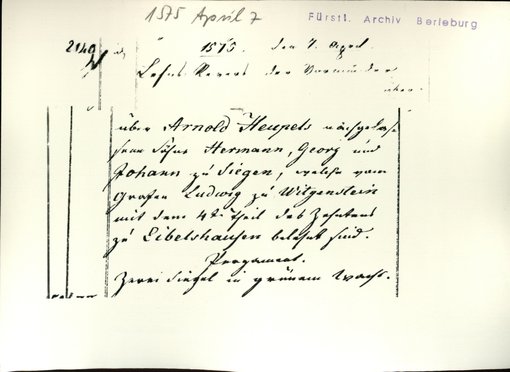 1575 April 7
Fürstl. Archiv Berleburg
2140
1575. den 7. April.
Lehns Revers der Vormünder
über
über Arnold Heupels nachgelas-
sene Söhne Hermann, Georg und
Johann zu Siegen, welche vom
Grafen Ludwig zu Witgenstein
mit dem 4t. theil des Zehntens
zu Eibelshausen belehnt sind.
Pergament.
Zwei Siegel in grünem Wachs.